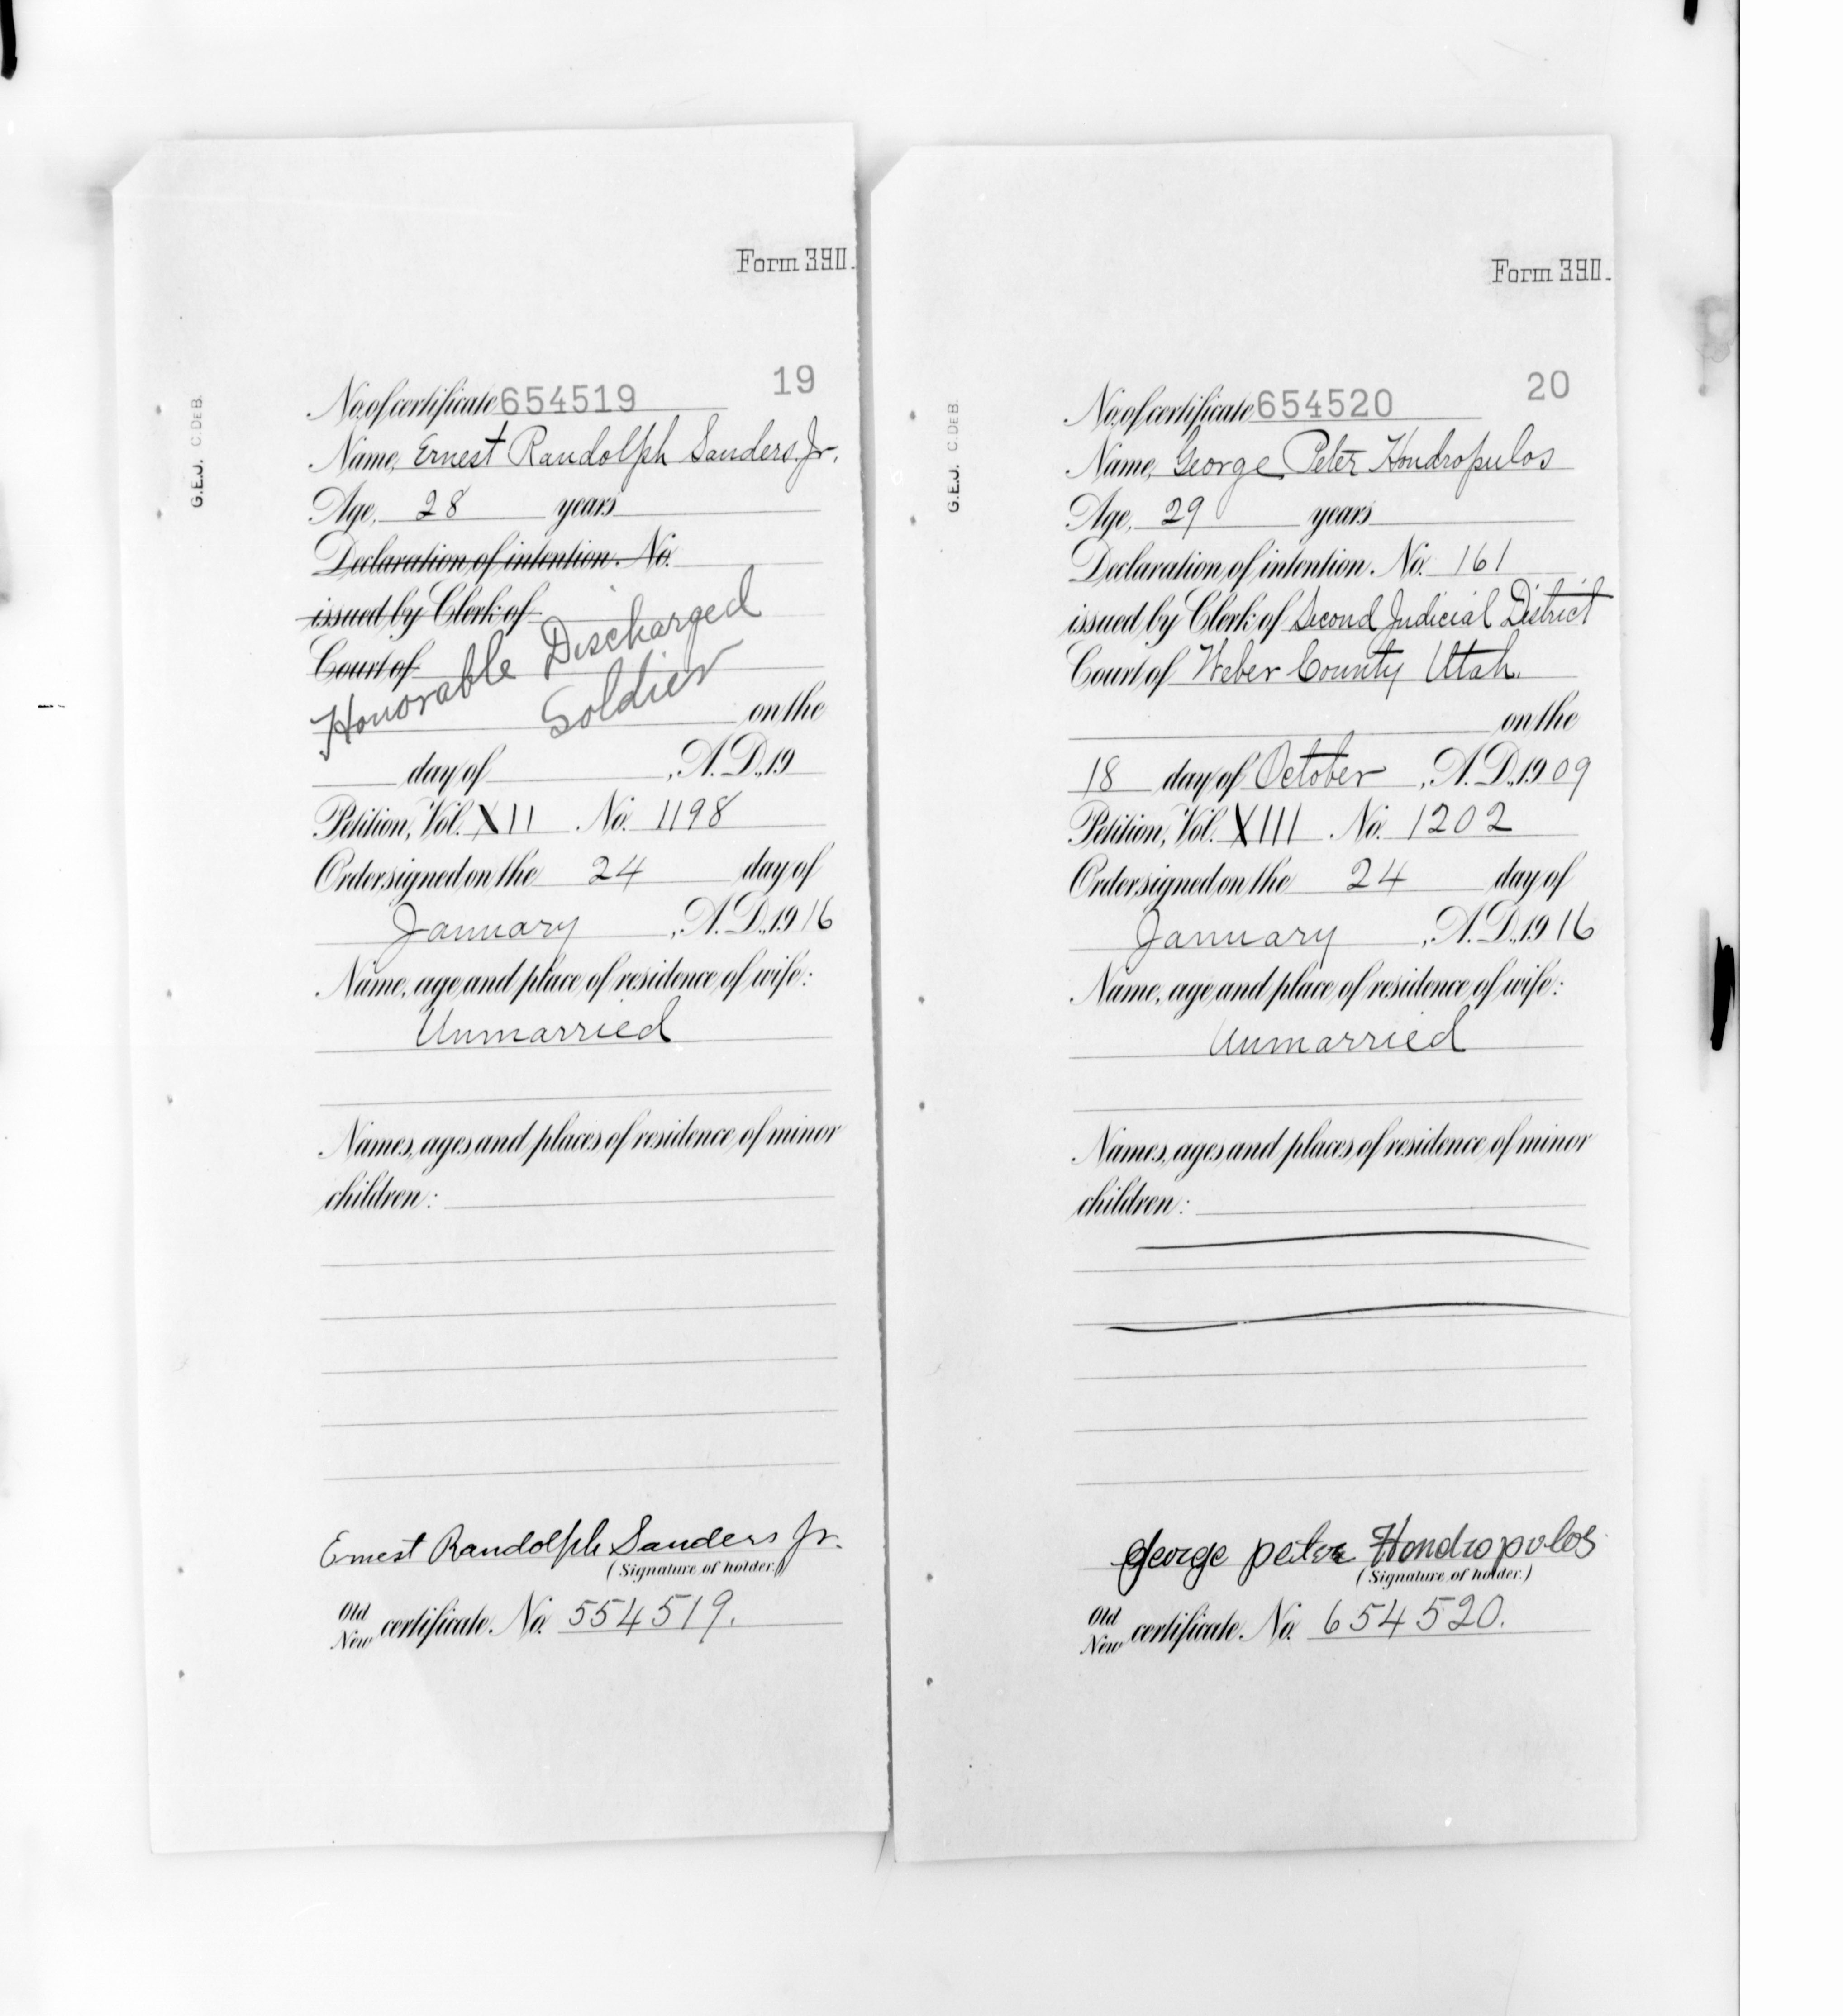 Form 390.
G.E.J. C.DEB.
19
No. of certificate 654519
Name, Ernest Randolph Sanders. Jr.
Age, 28 years
Declaration of intention. No.
issued by Clerk of
Court of
Honorable Discharged
Soldier
on the
day of , A.D., 19
Petition, Vol. XII . No. 1198
Order signed on the 24 day of
January , A.D., 1916
Name, age and place of residence of wife:
Unmarried
Names, ages and places of residence of minor
children:
Ernest Randolph Sanders Jr.
(Signature of holder.)
Old
New certificate. No. 554519.
Form 390.
G.E.J. C.DEB.
20
No. of certificate 654520
Name, George Peter Hondropulos
Age, 29 years
Declaration of intention. No. 161
issued by Clerk of Second Judicial District
Court of Weber County Utah.
on the
18 day of October , A.D., 1909
Petition, Vol. XIII . No. 1202
Order signed on the 24 day of
January , A.D., 1916
Name, age and place of residence of wife:
Unmarried
Names, ages and places of residence of minor
children:
George peter Hondropulos
(Signature of holder.)
Old
New certificate. No. 654520.